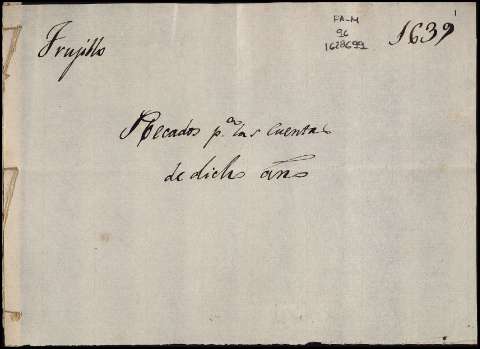 Trujillo
FA-M
96
1628699
1639
1
Recados pª las Cuentas
de dicho año